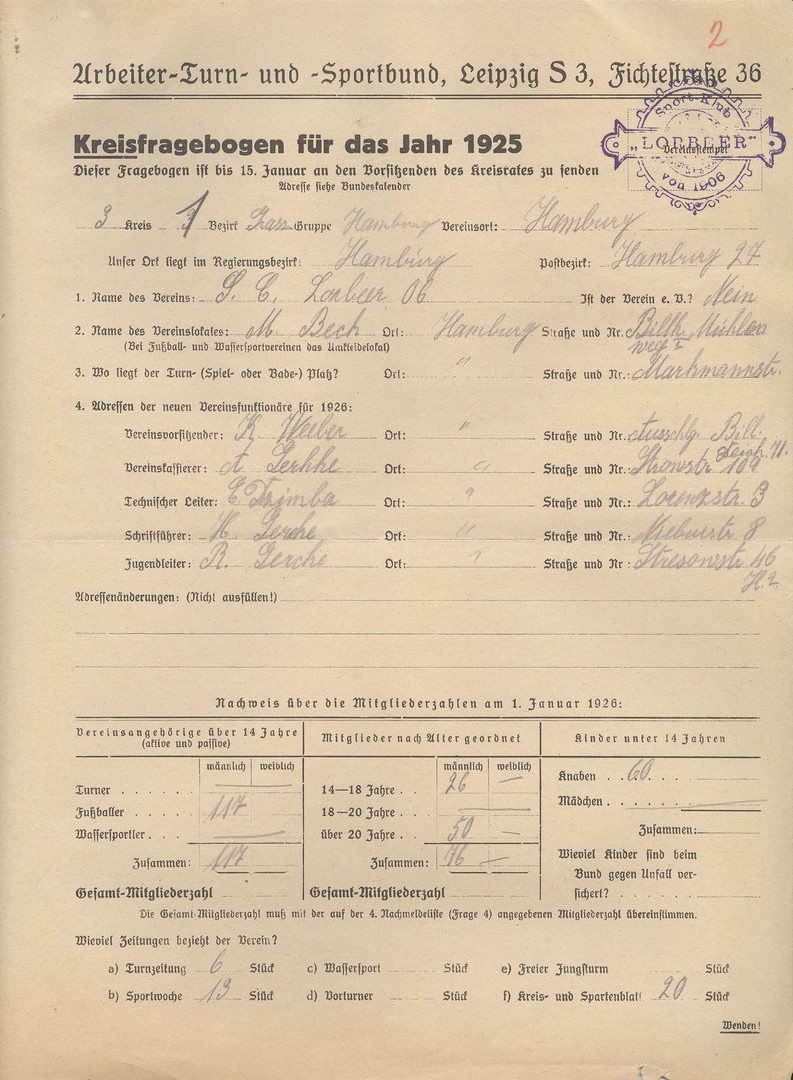 2
Arbeiter-Turn- und -Sportbund, Leipzig S 3, Fichtestraße 36
Sport-Klub
„LORBEER"
von 1906
Vereinsstempel
Kreisfragebogen für das Jahr 1925
Dieser Fragebogen ist bis 15. Januar an den Vorsitzenden des Kreisrates zu senden
Adresse siehe Bundeskalender
3 Kreis 1 Bezirk Gruppe Hamburg Vereinsort: Hamburg
Unser Ort liegt im Regierungsbezirk: Hamburg Postbezirk: Hamburg 27
1. Name des Vereins: S. C. Lorbeer 06 Ist der Verein e. V.? Nein
2. Name des Vereinslokales: M. Bech Ort: Hamburg Straße und Nr. Billh. Mühlen
(Bei Fußball- und Wassersportvereinen das Umkleidelokal) weg
3. Wo liegt der Turn- (Spiel- oder Bade-) Platz? Ort: " Straße und Nr.: Markmannstr.
4. Adressen der neuen Vereinsfunktionäre für 1926:
Vereinsvorsitzender: K. Weber Ort: " Straße und Nr.: Ausschlg. Bill.
deich 71.
Vereinskassierer: A. Gerhke Ort: " Straße und Nr.: 109
Technischer Leiter: E. Drimba Ort: " Straße und Nr.: Lorenzstr. 3
Schriftführer: H. Gerche Ort: " Straße und Nr.: Nieburstr 8
Jugendleiter: R. Gerche Ort: " Straße und Nr: Stresowstr 46
H. 2.
Adressenänderungen: (Nicht ausfüllen!)
Nachweis über die Mitgliederzahlen am 1. Januar 1926:
Vereinsangehörige über 14 Jahre
(aktive und passive)
männlich weiblich
Turner —
Fußballer 117
Wassersportler —
Zusammen: 117
Gesamt-Mitgliederzahl
Mitglieder nach Alter geordnet
männlich weiblich
14—18 Jahre 26 —
18—20 Jahre —
über 20 Jahre 50 —
Zusammen: 76 —
Gesamt-Mitgliederzahl
Kinder unter 14 Jahren
Knaben 60
Mädchen —
Zusammen:
Wieviel Kinder sind beim
Bund gegen Unfall ver-
sichert?
Die Gesamt-Mitgliederzahl muß mit der auf der 4. Nachmeldeliste (Frage 4) angegebenen Mitgliederzahl übereinstimmen.
Wieviel Zeitungen bezieht der Verein?
a) Turnzeitung 6 Stück c) Wassersport Stück e) Freier Jungsturm Stück
b) Sportwoche 13 Stück d) Vorturner Stück f) Kreis- und Spartenblatt 20 Stück
Wenden!